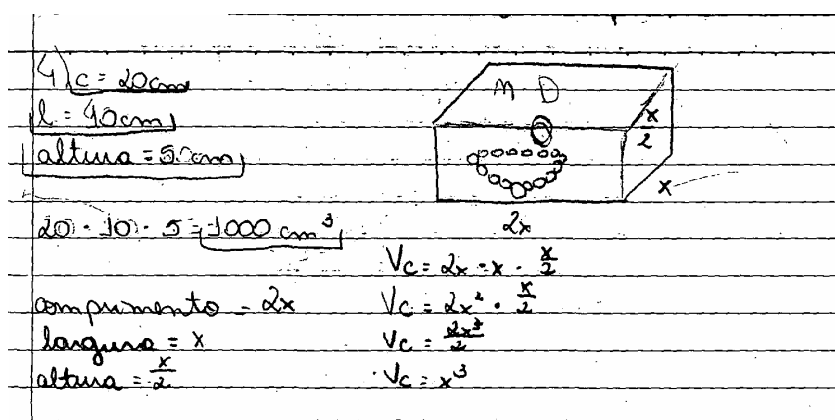 4) c = 20cm
l = 10cm
altura = 5cm
20 · 10 · 5 = 1000 cm³
comprimento = 2x
largura = x
altura = x/2
M D
x/2
x
2x
Vc = 2x · x · x/2
Vc = 2x² · x/2
Vc = 2x³/2
Vc = x³